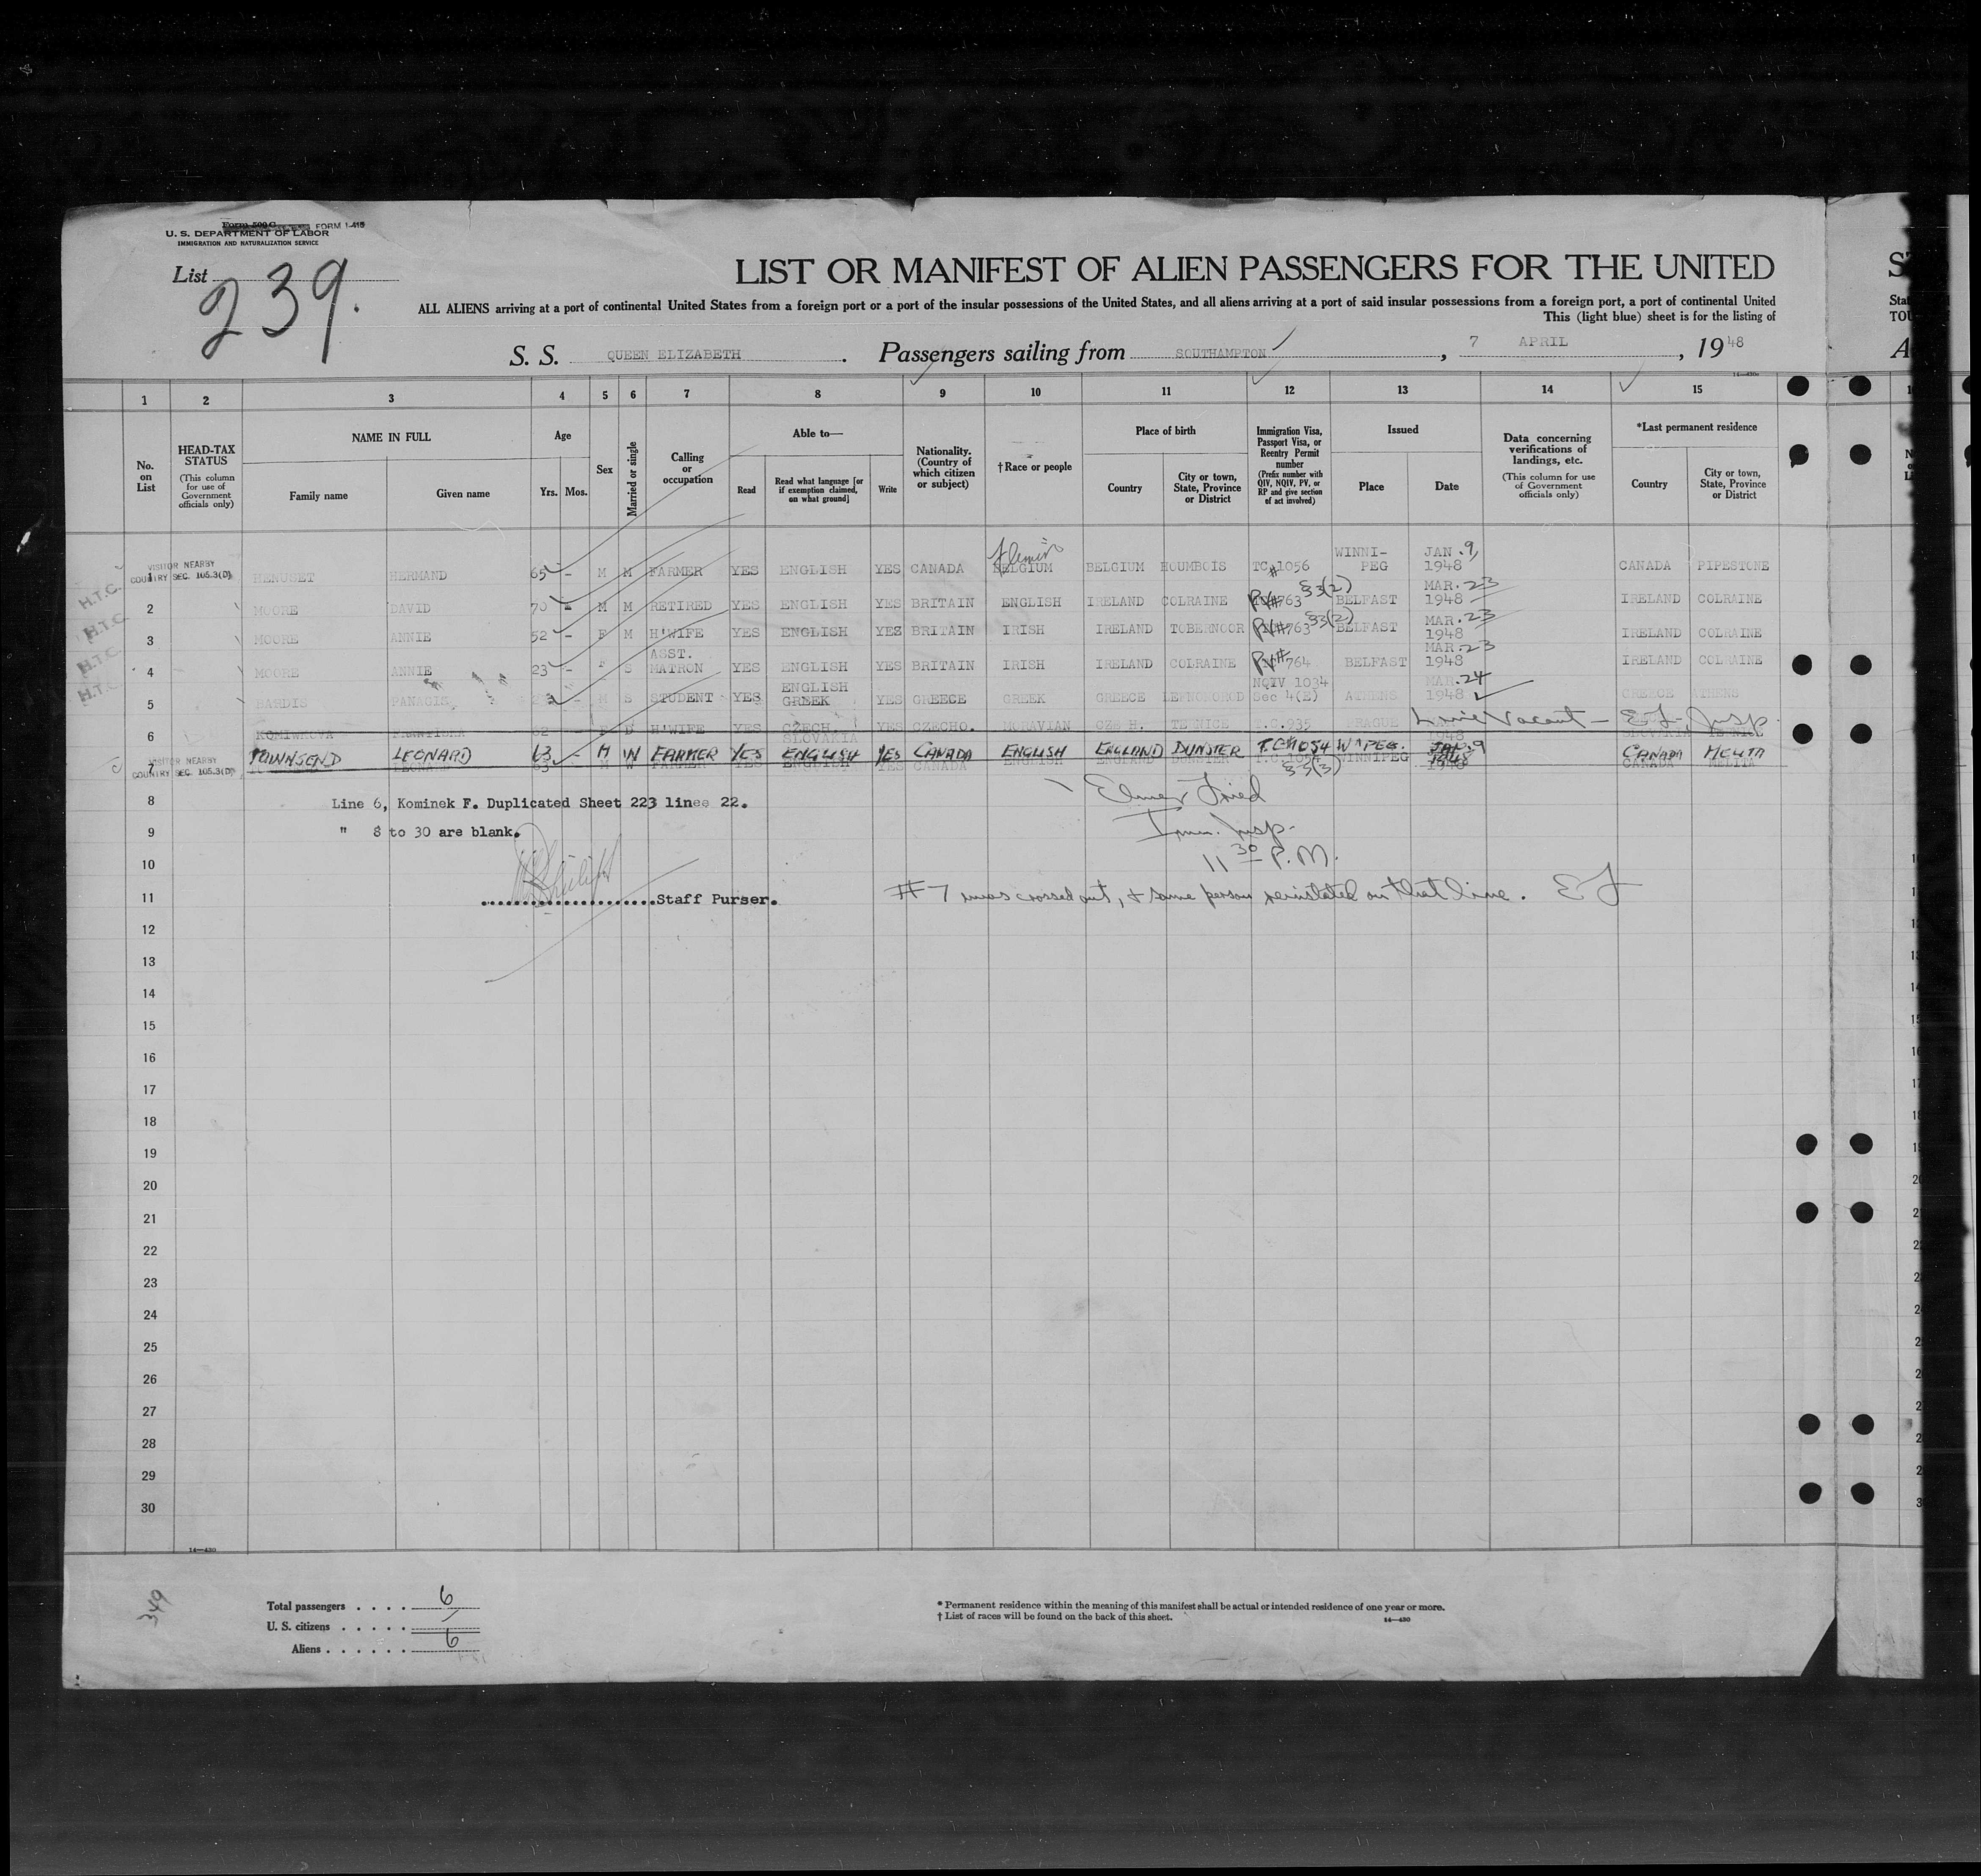 FORM I-415
U. S. DEPARTMENT OF LABOR
IMMIGRATION AND NATURALIZATION SERVICE
List 239.
LIST OR MANIFEST OF ALIEN PASSENGERS FOR THE UNITED
ALL ALIENS arriving at a port of continental United States from a foreign port or a port of the insular possessions of the United States, and all aliens arriving at a port of said insular possessions from a foreign port, a port of continental United
This (light blue) sheet is for the listing of
S. S. QUEEN ELIZABETH. Passengers sailing from SOUTHAMPTON, 7 APRIL, 1948
1 2 3 4 5 6 7 8 9 10 11 12 13 14 15
No. on List
HEAD-TAX STATUS (This column for use of Government officials only)
NAME IN FULL Family name Given name
Age Yrs. Mos.
Sex
Married or single
Calling or occupation
Able to— Read Read what language [or if exemption claimed, on what ground] Write
Nationality. (Country of which citizen or subject)
†Race or people
Place of birth Country City or town, State, Province or District
Immigration Visa, Passport Visa, or Reentry Permit number (Prefix number with QIV, NQIV, PV, or RP and give section of act involved)
Issued Place Date
Data concerning verifications of landings, etc. (This column for use of Government officials only)
*Last permanent residence Country City or town, State, Province or District
VISITOR NEARBY COUNTRY SEC. 105.3(D)
1 HERMAND 65 - M M FARMER YES ENGLISH YES CANADA BELGIUM BELGIUM HOUMBOIS TC#1056 WINNI-PEG JAN. 9, 1948 CANADA PIPESTONE
H.T.C. 2 MOORE DAVID 70 - M M RETIRED YES ENGLISH YES BRITAIN ENGLISH IRELAND COLRAINE PV#763 §3(2) BELFAST MAR. 23 1948 IRELAND COLRAINE
H.T.C. 3 MOORE ANNIE 52 - F M H'WIFE YES ENGLISH YES BRITAIN IRISH IRELAND TOBERNOOR PV#763 §3(2) BELFAST MAR. 23 1948 IRELAND COLRAINE
H.T.C. 4 MOORE ANNIE 23 - F S ASST. MATRON YES ENGLISH YES BRITAIN IRISH IRELAND COLRAINE PV#764 BELFAST MAR. 23 1948 IRELAND COLRAINE
H.T.C. 5 BARDIS PANAGIS - M S STUDENT YES ENGLISH GREEK YES GREECE GREEK GREECE NQIV 1034 Sec 4(E) ATHENS MAR. 24 1948 GREECE ATHENS
6 62 - F D H'WIFE YES CZECH. SLOVAKIA YES CZECHO. MORAVIAN T.C.935 PRAGUE Line Vacant — E.F. Insp.
7 TOWNSEND LEONARD 63 - M W FARMER YES ENGLISH YES CANADA ENGLISH ENGLAND DUNSTER T.C#1054 W'PEG. JAN. 9 1948 CANADA MELITA
VISITOR NEARBY COUNTRY SEC. 105.3(D) 63 M W FARMER YES ENGLISH YES CANADA ENGLISH ENGLAND DUNSTER T.C.1054 §3(3) WINNIPEG 1948 CANADA MELITA
8 Line 6, Kominek F. Duplicated Sheet 223 line 22.
Elmer Fried
9 " 8 to 30 are blank.
Imm. Insp.
10 11 30 P.M.
11 Staff Purser.
#7 was crossed out, & same person reinstated on that line. EF
12
13
14
15
16
17
18
19
20
21
22
23
24
25
26
27
28
29
30
14—430
349
Total passengers . . . . 6
U. S. citizens . . . . .
Aliens . . . . . . 6
* Permanent residence within the meaning of this manifest shall be actual or intended residence of one year or more.
† List of races will be found on the back of this sheet.
14—430